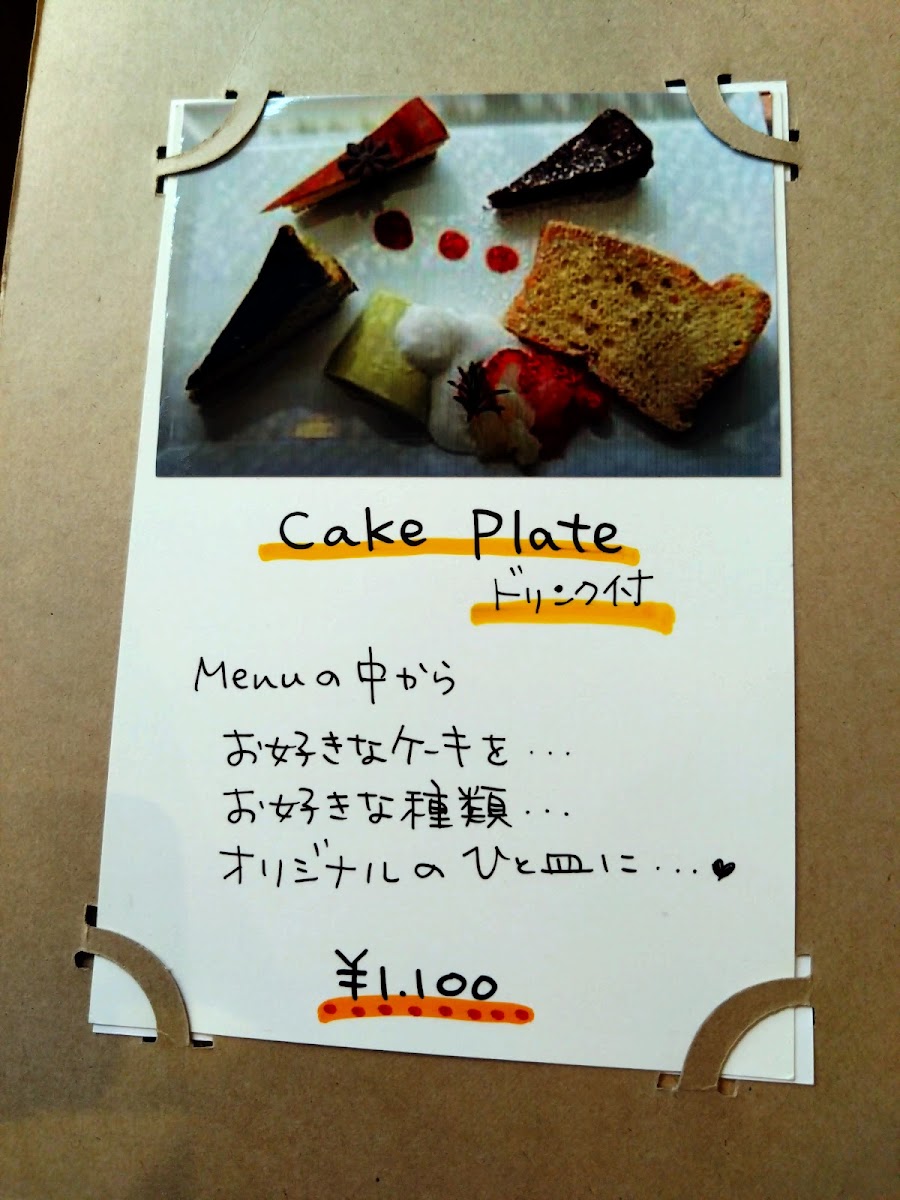 Cake Plate
ドリンク付
Menuの中から
お好きなケーキを...
お好きな種類...
オリジナルのひと皿に...♥
¥1.100